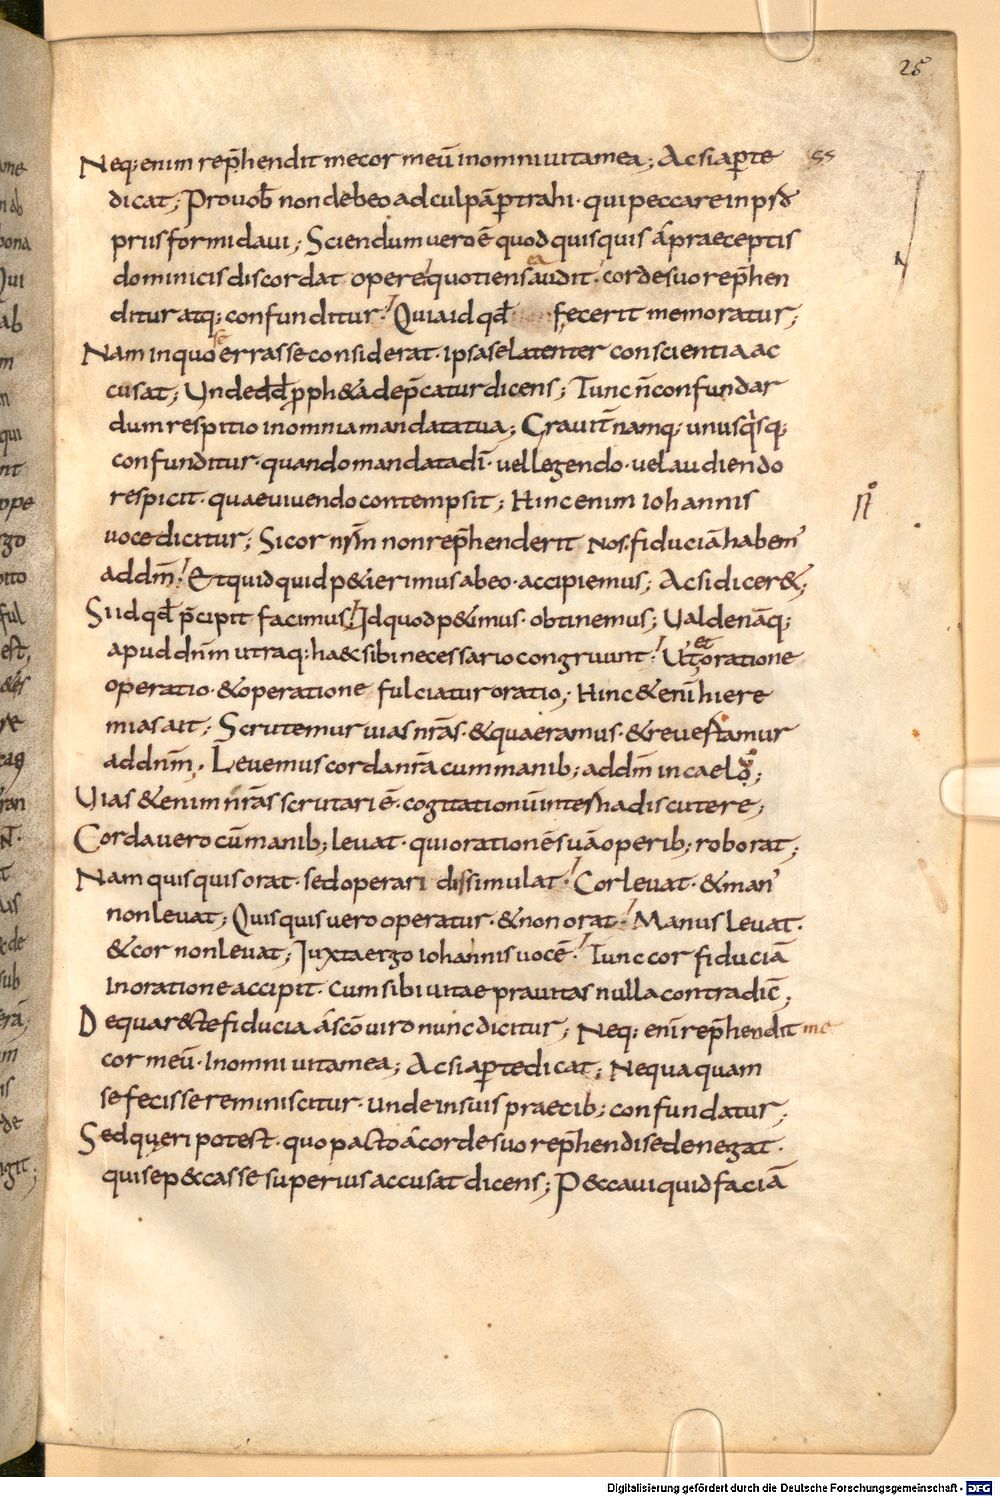 25
Neq; enim rep̄hendit me cor meū in omni vita mea; Ac si aꝑte
dicat; Pro uob̄ non debeo ad culpā ꝑtrahi · qui peccare in
prius formidaui; Sciendum uero ē quod quisquis á praeceptis
dominicis discordat opere quotiens ea audit · corde suo rep̄hen
ditur atq; confunditur · Quia id qd̄ fecerit memoratur;
Nam in quo se errasse considerat · ipsa se latenter conscientia ac
cusat; Unde dd̄ ꝓph&a dep̄catur dicens; Tunc n̄ confundar
dum respitio in omnia mandata tua; Grauit̄ namq; unusq̇sq;
confunditur · quando mandata dī · uel legendo · uel audiendo
respicit · quae uiuendo contempsit; Hinc enim iohannis
uoce dicitur; Si cor nr̄m non rep̄henderit nos · fiduciā habem'
ad dm̄ · Et quidquid p&ierimus ab eo · accipiemus; Ac si dicer&;
Si id qd̄ p̄cipit facimus · Id quod p&imus · obtinemus; Ualde nāq;
apud dnm̄ utraq; haec sibi necessario congruunt · Ut et oratione
operatio · & operatione fulciatur oratio; Hinc & enī hiere
mias ait; Scrutemur uias nr̄as · & quaeramus · & reuertamur
ad dnm̄ · Leuemus corda nr̄a cum manib; ad dm̄ in caelo;
Uias & enim nr̄as scrutari ē · cogitationū interna discutere;
Corda uero cū manib; leuat · qui orationē suā operib; roborat;
Nam quisquis orat · sed operari dissimulat · Cor leuat · & man'
non leuat; Quisquis uero operatur · & non orat · Manus leuat ·
& cor non leuat; Iuxta ergo iohannis uocē · Tunc cor fiduciā
In oratione accipit · cum sibi uitae prauitas nulla contradic̄;
De qua recte fiducia á sc̄o uiro nunc dicitur; Neq; enī rep̄hendit me
cor meū · In omni uita mea; Ac si aꝑte dicat; Nequaquam
se fecisse reminiscitur · unde in suis praecib; confundatur;
Sed queri potest · quo pacto á corde suo rep̄hendi se denegat ·
qui se p&casse superius accusat dicens; P&caui quid faciā
Digitalisierung gefördert durch die Deutsche Forschungsgemeinschaft - DFG